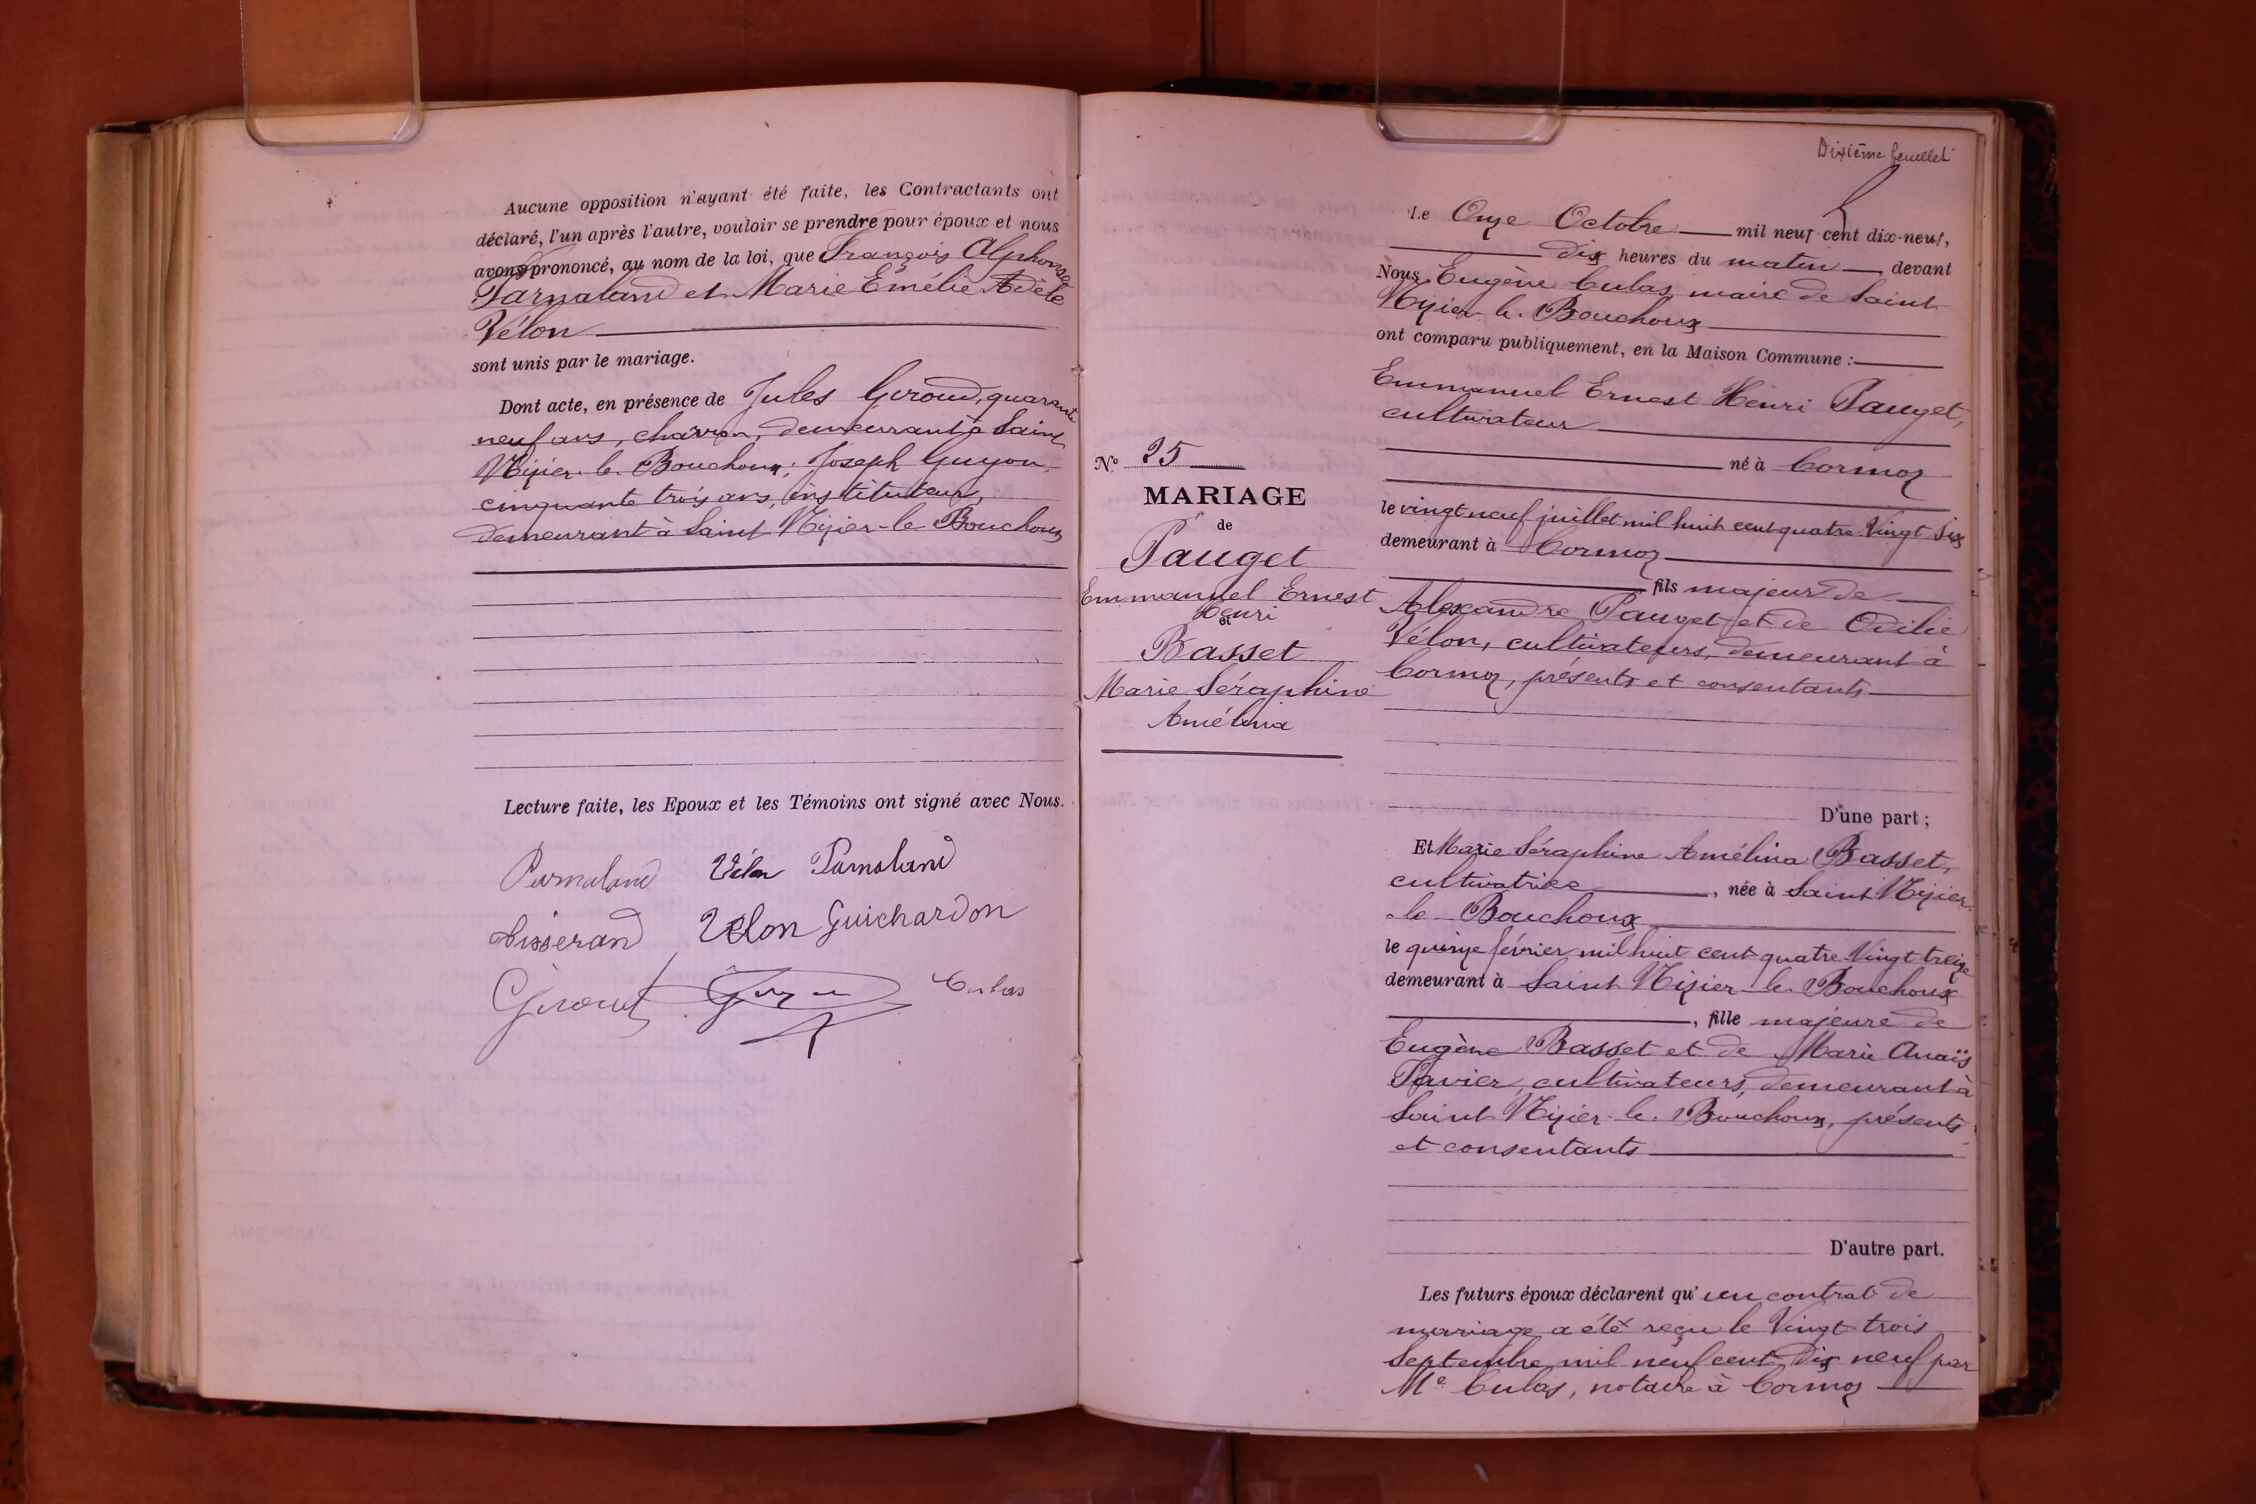 Aucune opposition n'ayant été faite, les Contractants ont
déclaré, l'un après l'autre, vouloir se prendre pour époux et nous
avons prononcé, au nom de la loi, que François Alphonse
Parnaland et Marie Emélie Adèle
Vélon
sont unis par le mariage.
Dont acte, en présence de Jules Giroud, quarante
neuf ans, charron, demeurant à Saint
Nizier-le-Bouchoux; Joseph Guyon
cinquante trois ans, instituteur,
demeurant à Saint Nizier-le Bouchoux
Lecture faite, les Epoux et les Témoins ont signé avec Nous.
Parnaland Vélon Parnaland
Tisserand Vélon Guichardon
Giroud Guyon Culas
Dixième feuillet
Le Onze Octobre mil neuf cent dix-neuf,
dix heures du matin, devant
Nous Eugène Culas, maire de Saint
Nizier-le-Bouchoux
ont comparu publiquement, en la Maison Commune :
Emmanuel Ernest Henri Pauget,
cultivateur
né à Cormoz
le vingt neuf juillet mil huit cent quatre Vingt Six
demeurant à Cormoz
fils majeur de
Alexandre Pauget et de Odilie
Vélon, cultivateurs, demeurant à
Cormoz, présents et consentants
D'une part ;
N° 25
MARIAGE
de
Pauget
Emmanuel Ernest
Henri
et
Basset
Marie Séraphine
Amélina
Et Marie Séraphine Amélina Basset,
cultivatrice, née à Saint Nizier-
-le-Bouchoux
le quinze février mil huit cent quatre Vingt treize
demeurant à Saint Nizier-le-Bouchoux
, fille majeure de
Eugène Basset et de Marie Anaïs
Pavier, cultivateurs, demeurant à
Saint Nizier-le-Bouchoux, présents
et consentants
D'autre part.
Les futurs époux déclarent qu'un contrat de
mariage a été reçu le Vingt trois
Septembre mil neuf cent dix neuf par
Me Culas, notaire à Cormoz